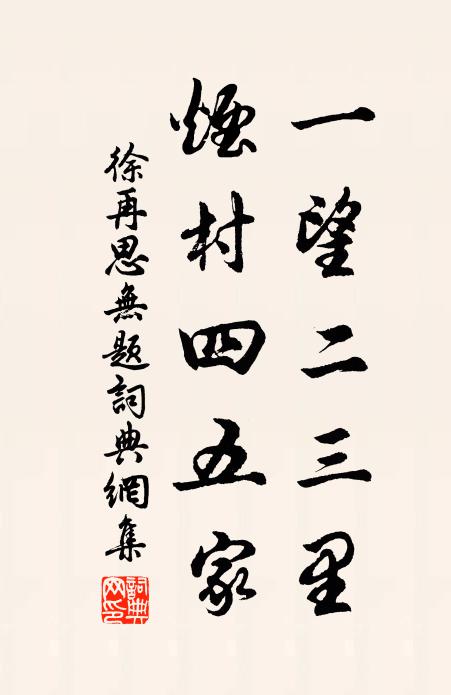 一望二三里
煙村四五家
徐再思無題詞典網集
詞典網印